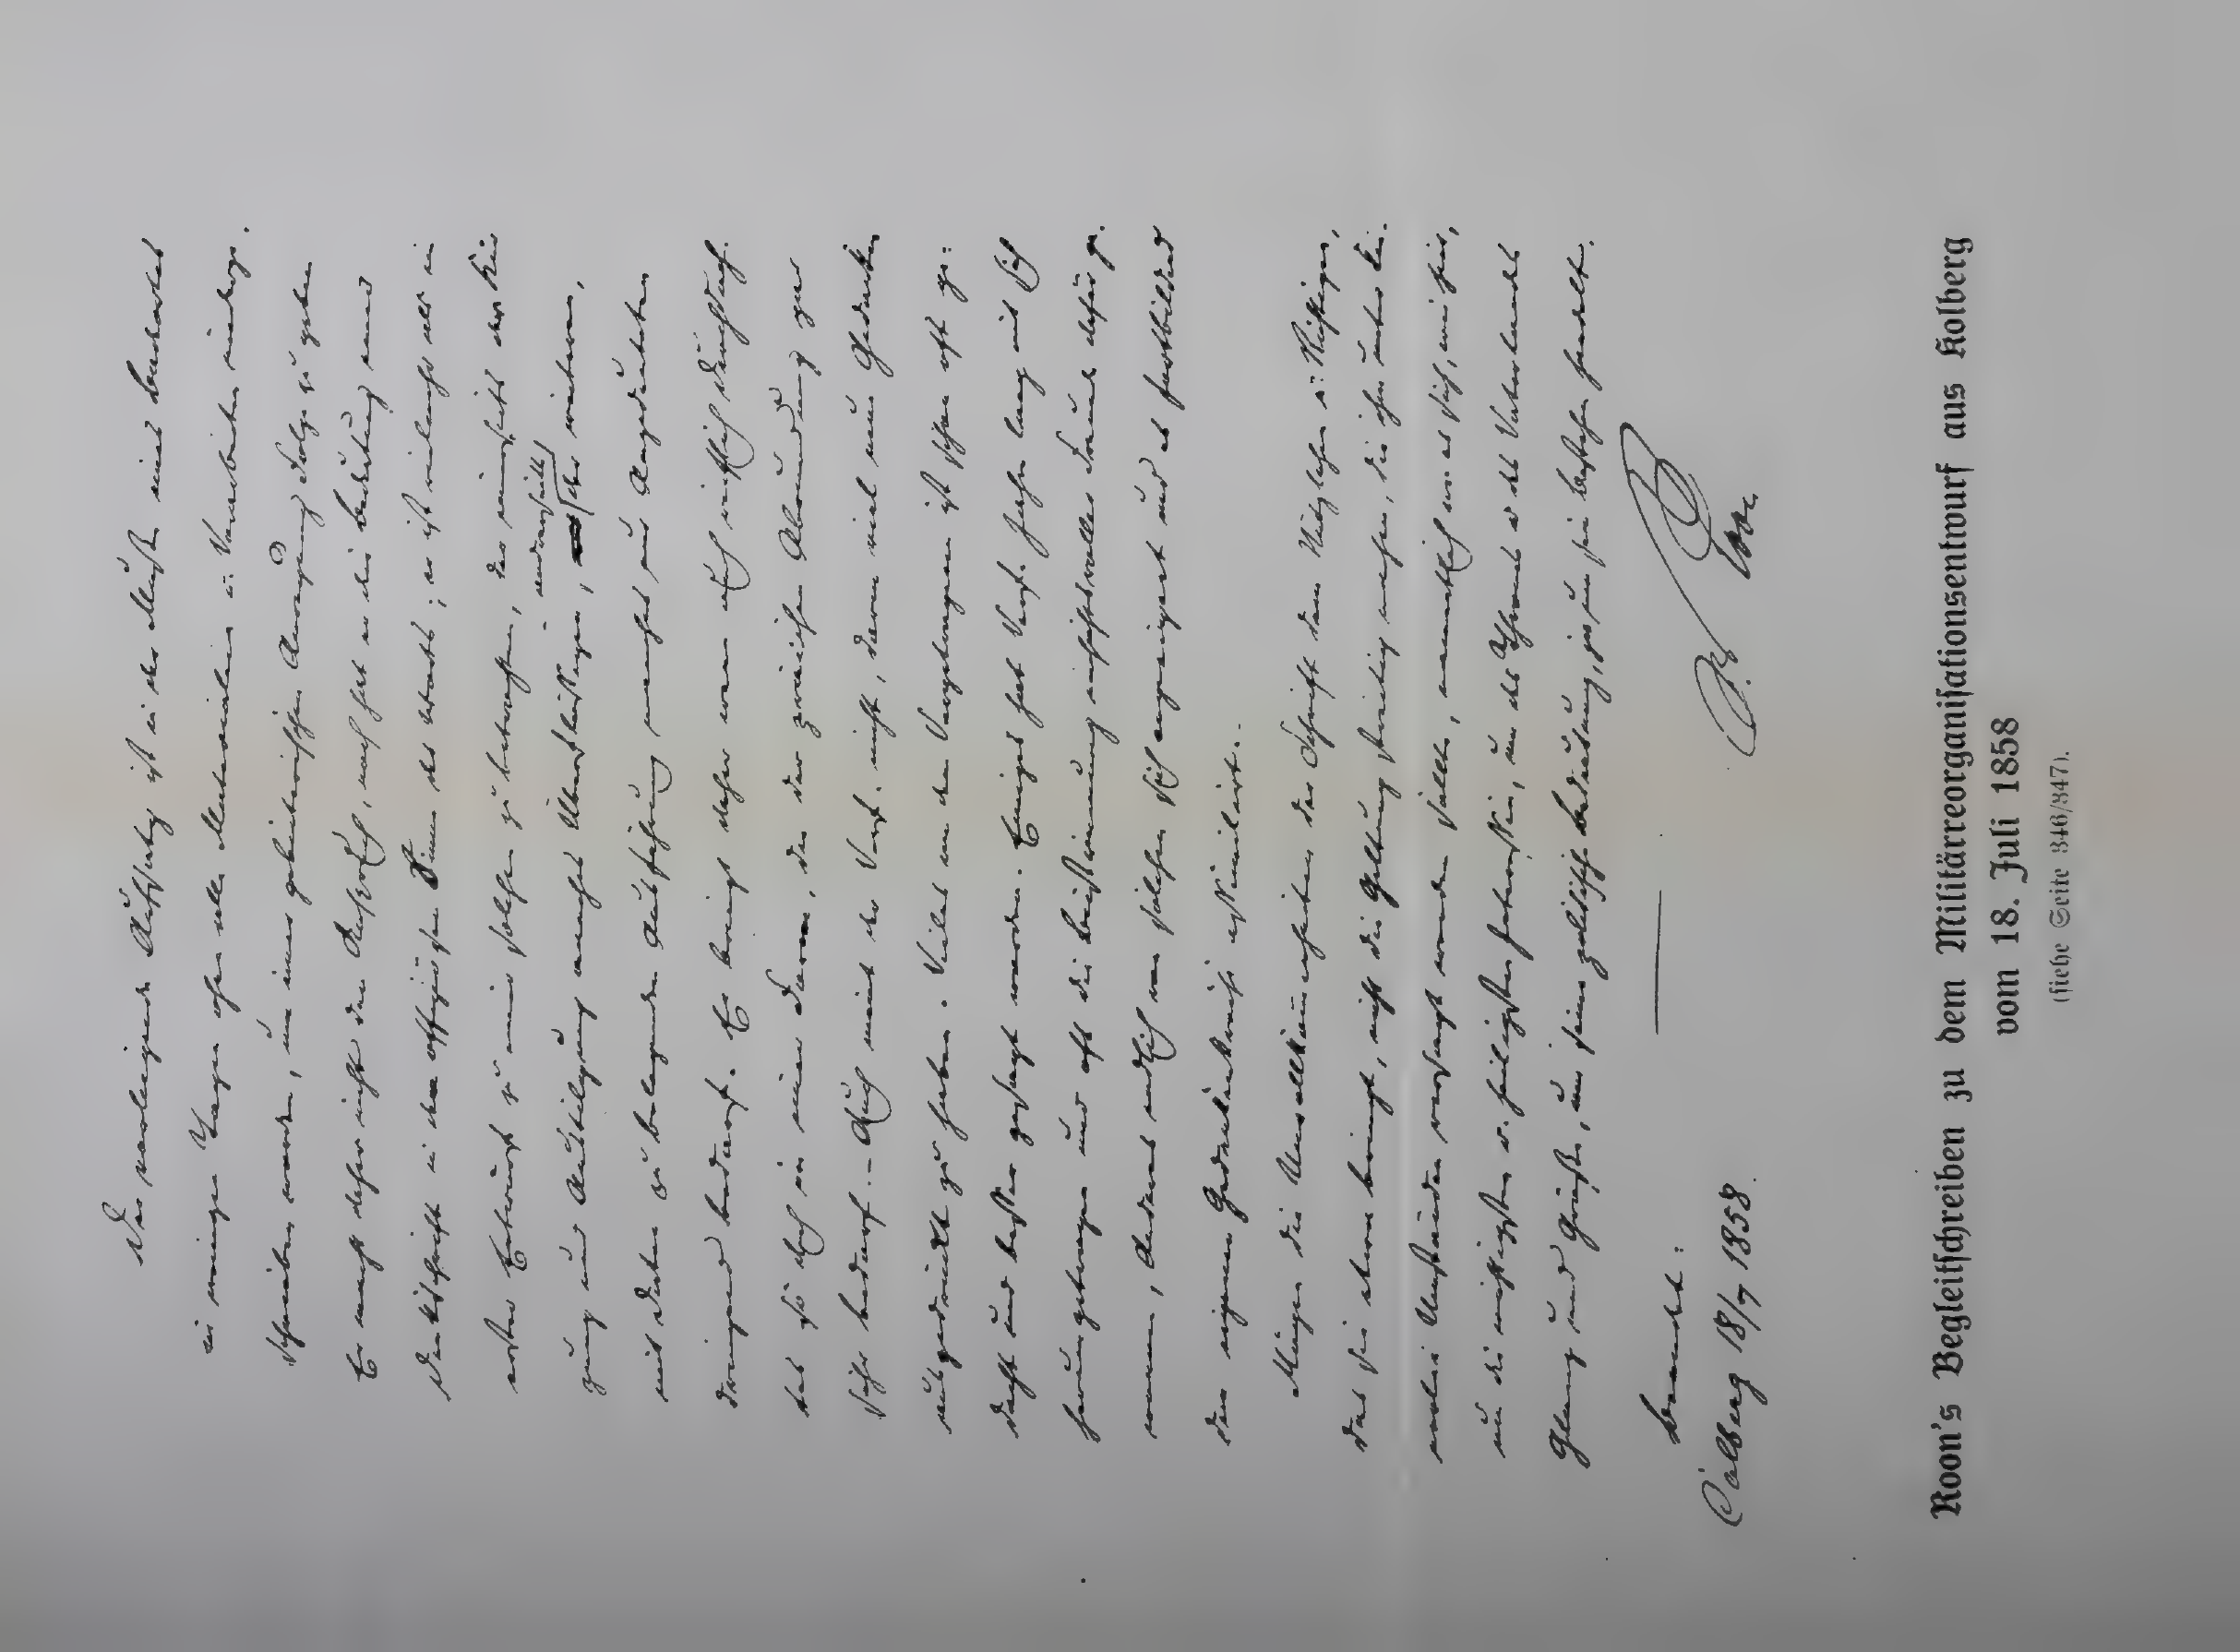 Der vorliegende Aufsatz ist in der Muße eines Badeortes
in wenigen Tagen ohne alle Materialien u. Vorarbeiten niederge-
schrieben worden, um einer gebieterischen Anregung Folge zu geben.
Er macht daher nicht den Anspruch, noch hat er die Bedeutung einer
Denkschrift in dem offiziösen Sinne des Worts; er ist vielmehr als ein
erster Entwurf zu einer solchen zu betrachten, der einerseits der Kür-
andrerseits
zung und Austilgung manches Überflüssigen, der weiteren,
mit Daten zu belegenden Ausführung manches nur Angedeuteten
dringend bedarf. Er bringt daher
sehr bedarf. – Auch meint der Verf. nicht, darin viel neue Gedanken
ausgedrückt zu haben. Vieles von dem Vorgetragenen ist schon oft ge-
dacht und besser gesagt worden. Einiges hat Verf. Jahre lang mit sich
herumgetragen und oft die Beistimmung einsichtsvoller Freunde dafür ge-
wonnen, Anderes endlich von solchen sich angeeignet und es fortbildend
den eigenen Gedankenkreis assimilirt. –
Mögen die Unvollkommenheiten der Schrift dem Nützlichen u. Richtigen,
das sie etwa bringt, nicht die Geltung streitig machen, die ihm unter kei-
nerlei Umständen versagt werden sollte, namentlich wenn es sich, wie hier,
um die wichtigsten u. heiligsten Interessen, um des Thrones u. des Vaterlandes
Glanz und Größe, um seine politische Bedeutung, ja um sein Bestehen handelt.
beendet:
Colberg 18/7 1858.
v. Roon
Roon's Begleitschreiben zu dem Militärreorganisationsentwurf aus Kolberg
vom 18. Juli 1858
(siehe Seite 346/347).